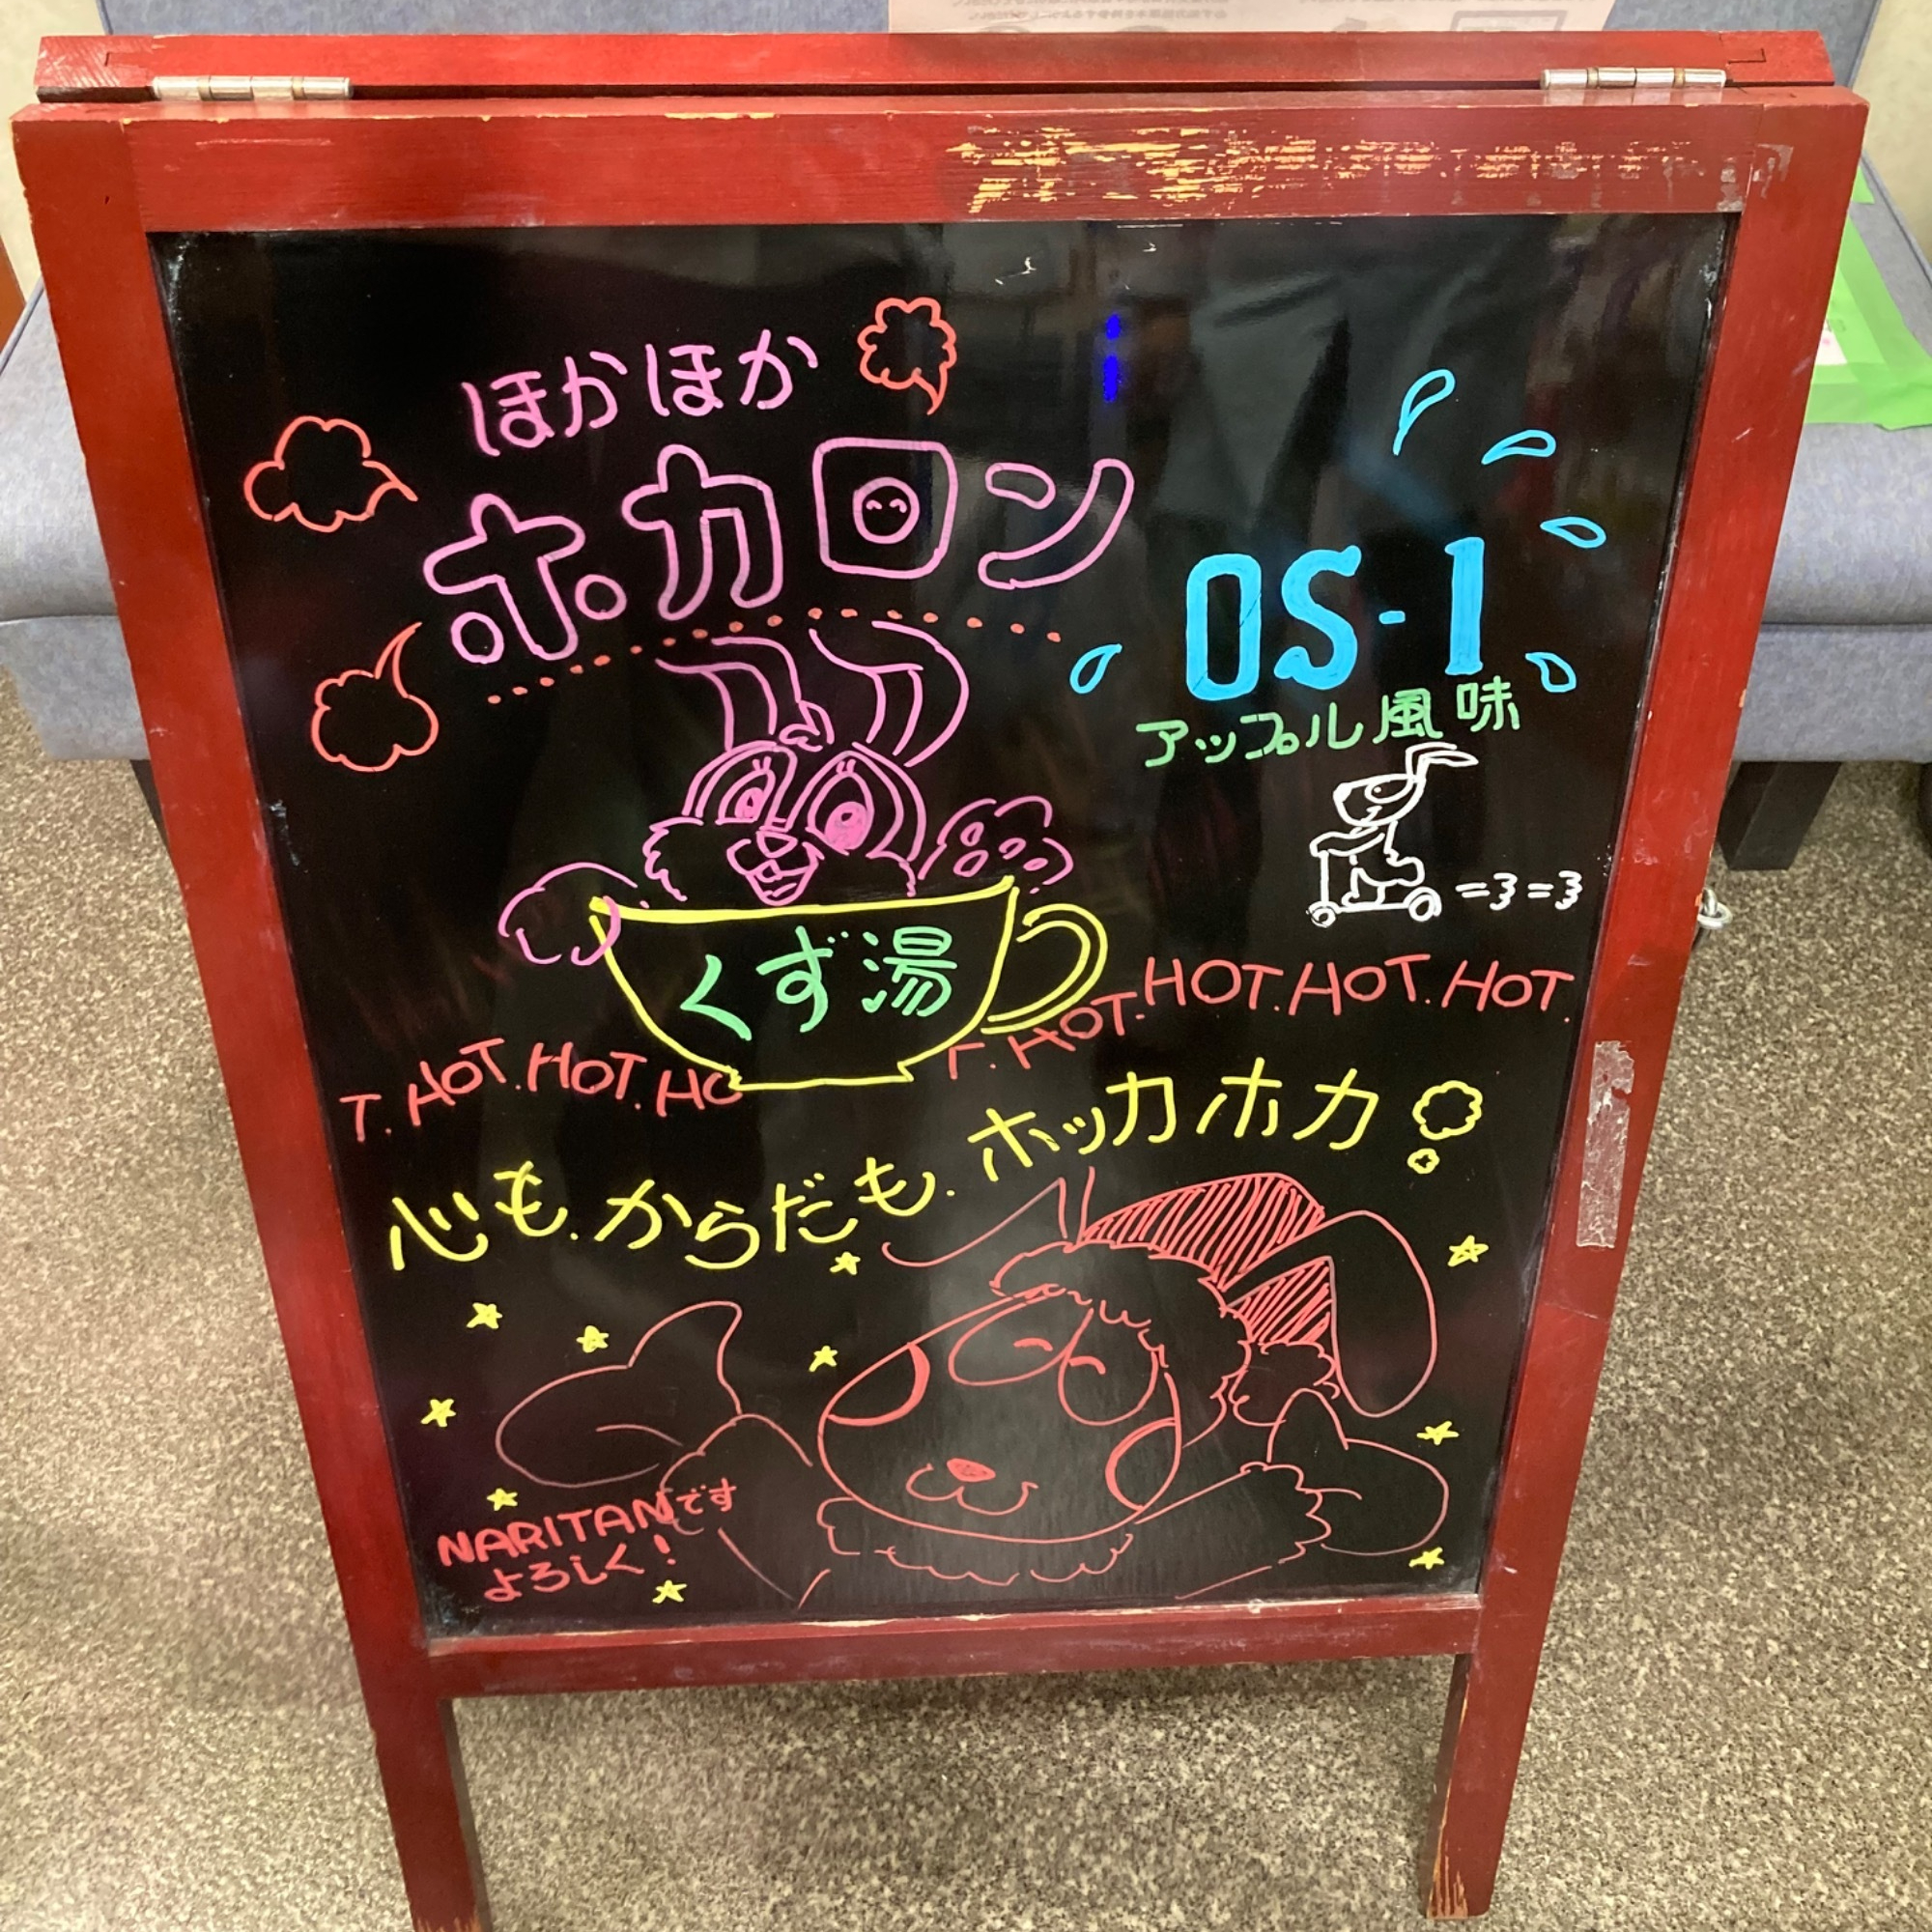 ほかほか
ホカロン
OS-1
アップル風味
=3=3
くず湯
T. HOT. HOT. HO
T. HOT. HOT. HOT. HOT.
心も.からだも.ホッカホカ
NARITANです
よろしく!